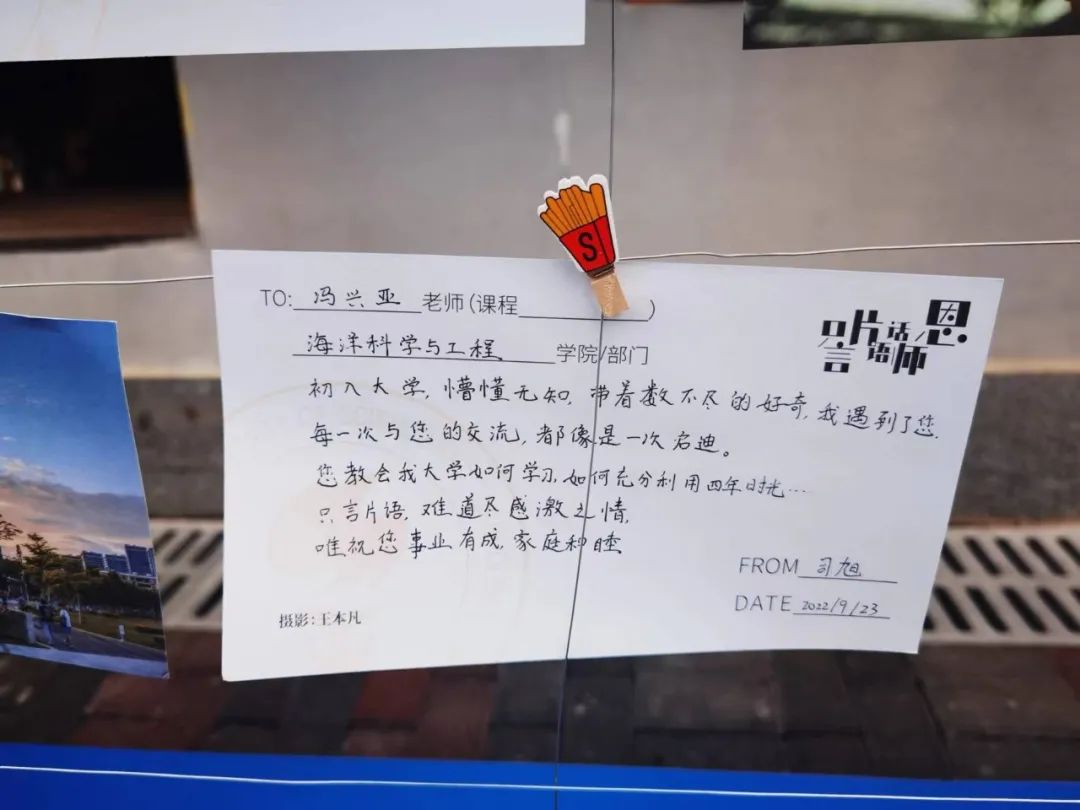 S
TO: 冯兴亚 老师(课程      )
海洋科学与工程 学院/部门
只言片语话师恩
初入大学,懵懂无知,带着数不尽的好奇,我遇到了您.
每一次与您的交流,都像是一次启迪。
您教会我大学如何学习,如何充分利用四年时光...
只言片语,难道尽感激之情,
唯祝您事业有成,家庭和睦
FROM 司旭
DATE 2022/9/23
摄影:王本凡